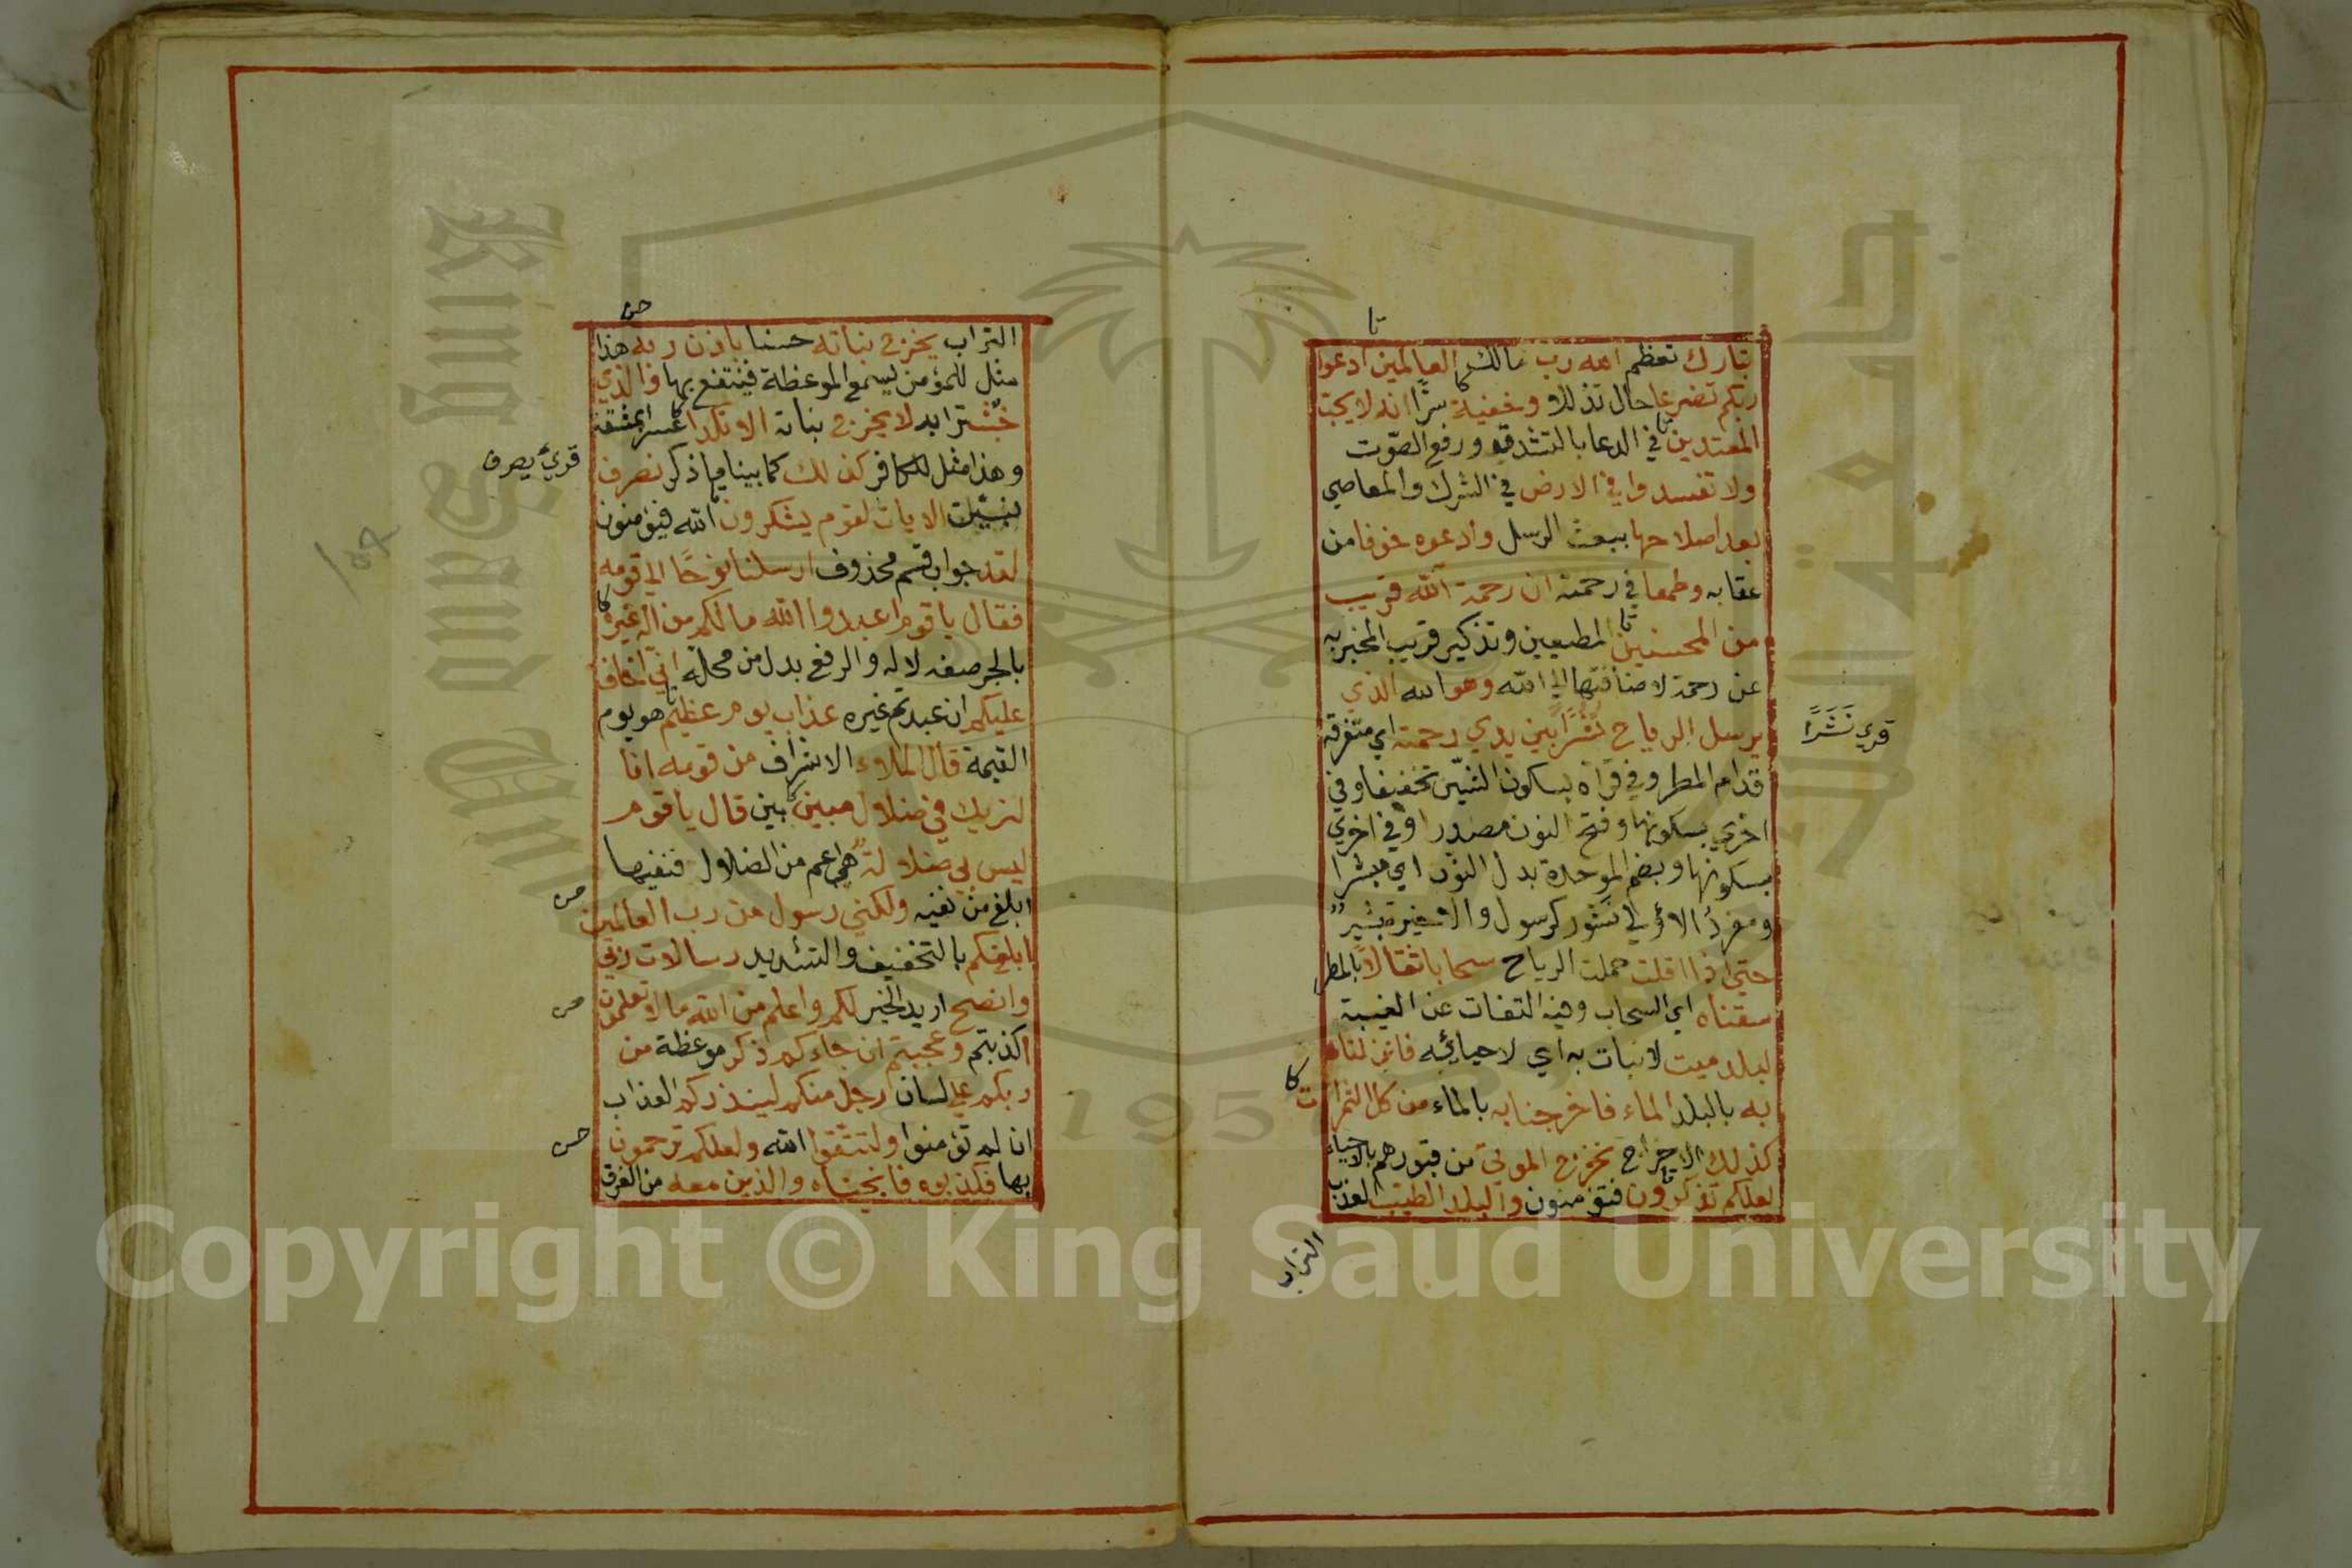 تا
تبارك تعظم الله رب مالك العالمين ادعوا
ربكم تضرعا حال تذللا وخفية سرًّا انه لا يحب
المعتدين في الدعا بالتشدق ورفع الصّوت
ولا تفسدوا في الارض في الشرك والمعاصي
بعد اصلاحها ببعث الرسل وادعوه خوفا من
عقابه وطمعا في رحمته ان رحمة الله قريب
من المحسنين المطيعين وتذكير قريب المخبر به
عن رحمة لاضافتها الي الله وهو الله الذي
يرسل الرياح نُشُرًا بين يدي رحمته اي متفرقة
قري نَشَرًا
قدام المطر وفي قراة بسكون الشيّن تخفيفا وفي
اخري بسكونها وفتح النون مصدرا وفي اخري
بسكونها وبضم الموحدة بدل النّون اي مبشرا
ومفردُ الاؤلي نشور كرسول والاخيرة بشير
حتي اذا اقلت حملت الرياح سحابا ثقالاً بالمطر
سقناه اي السحاب وفيه التفات عن الغيبة
لبلد ميت لا نبات به اي لاحيائه فانزلنا
به بالبلد الماء فاخرجنا به بالماء من كل الثمرات
كا
كذلك الاخراج نخرج الموتي من قبورهم بالاحياء
لعلكم تذكرون فتؤمنون والبلد الطيب العذب
التراب
التراب يخرج نباته حسنا باذن ربه هذا
مثل للمؤمن يسمع الموعظة فينتفع بها والذي
خبث ترابه لا يخرج نباته الا نكدا عسرا بمشقة
وهذا مثل للكافر كذلك كما بينا ما ذكر نصرف
قرئ يصرف
نبيّن الايات لقوم يشكرون الله فيؤمنون
لقد جواب قسم محذوف ارسلنا نوحًا الي قومه
فقال يا قوم اعبدوا الله ما لكم من اله غيره
بالجر صفة لاله والرفع بدل من محله اني اخاف
عليكم ان عبدتم غيره عذاب يوم عظيم هو يوم
القيمة قال الملاء الاشراف من قومه انا
لنريك في ضلال مبين بين قال يا قوم
ليس بي ضلالة هي اعم من الضلال فنفيها
ابلغ من نفيه ولكني رسول من رب العالمين
ابلغكم بالتخفيف والتشديد رسالات ربي
وانصح اريد الخير لكم واعلم من الله ما لا تعلمون
اكذبتم وعجبتم ان جاءكم ذكر موعظة من
ربكم علي لسان رجل منكم لينذركم العذاب
ان لم تؤمنوا ولتتقوا الله ولعلكم ترحمون
بها فكذبوه فانجيناه والذين معه من الغرق
King Saud University
جامعة الملك سعود
1957
Copyright © King Saud University